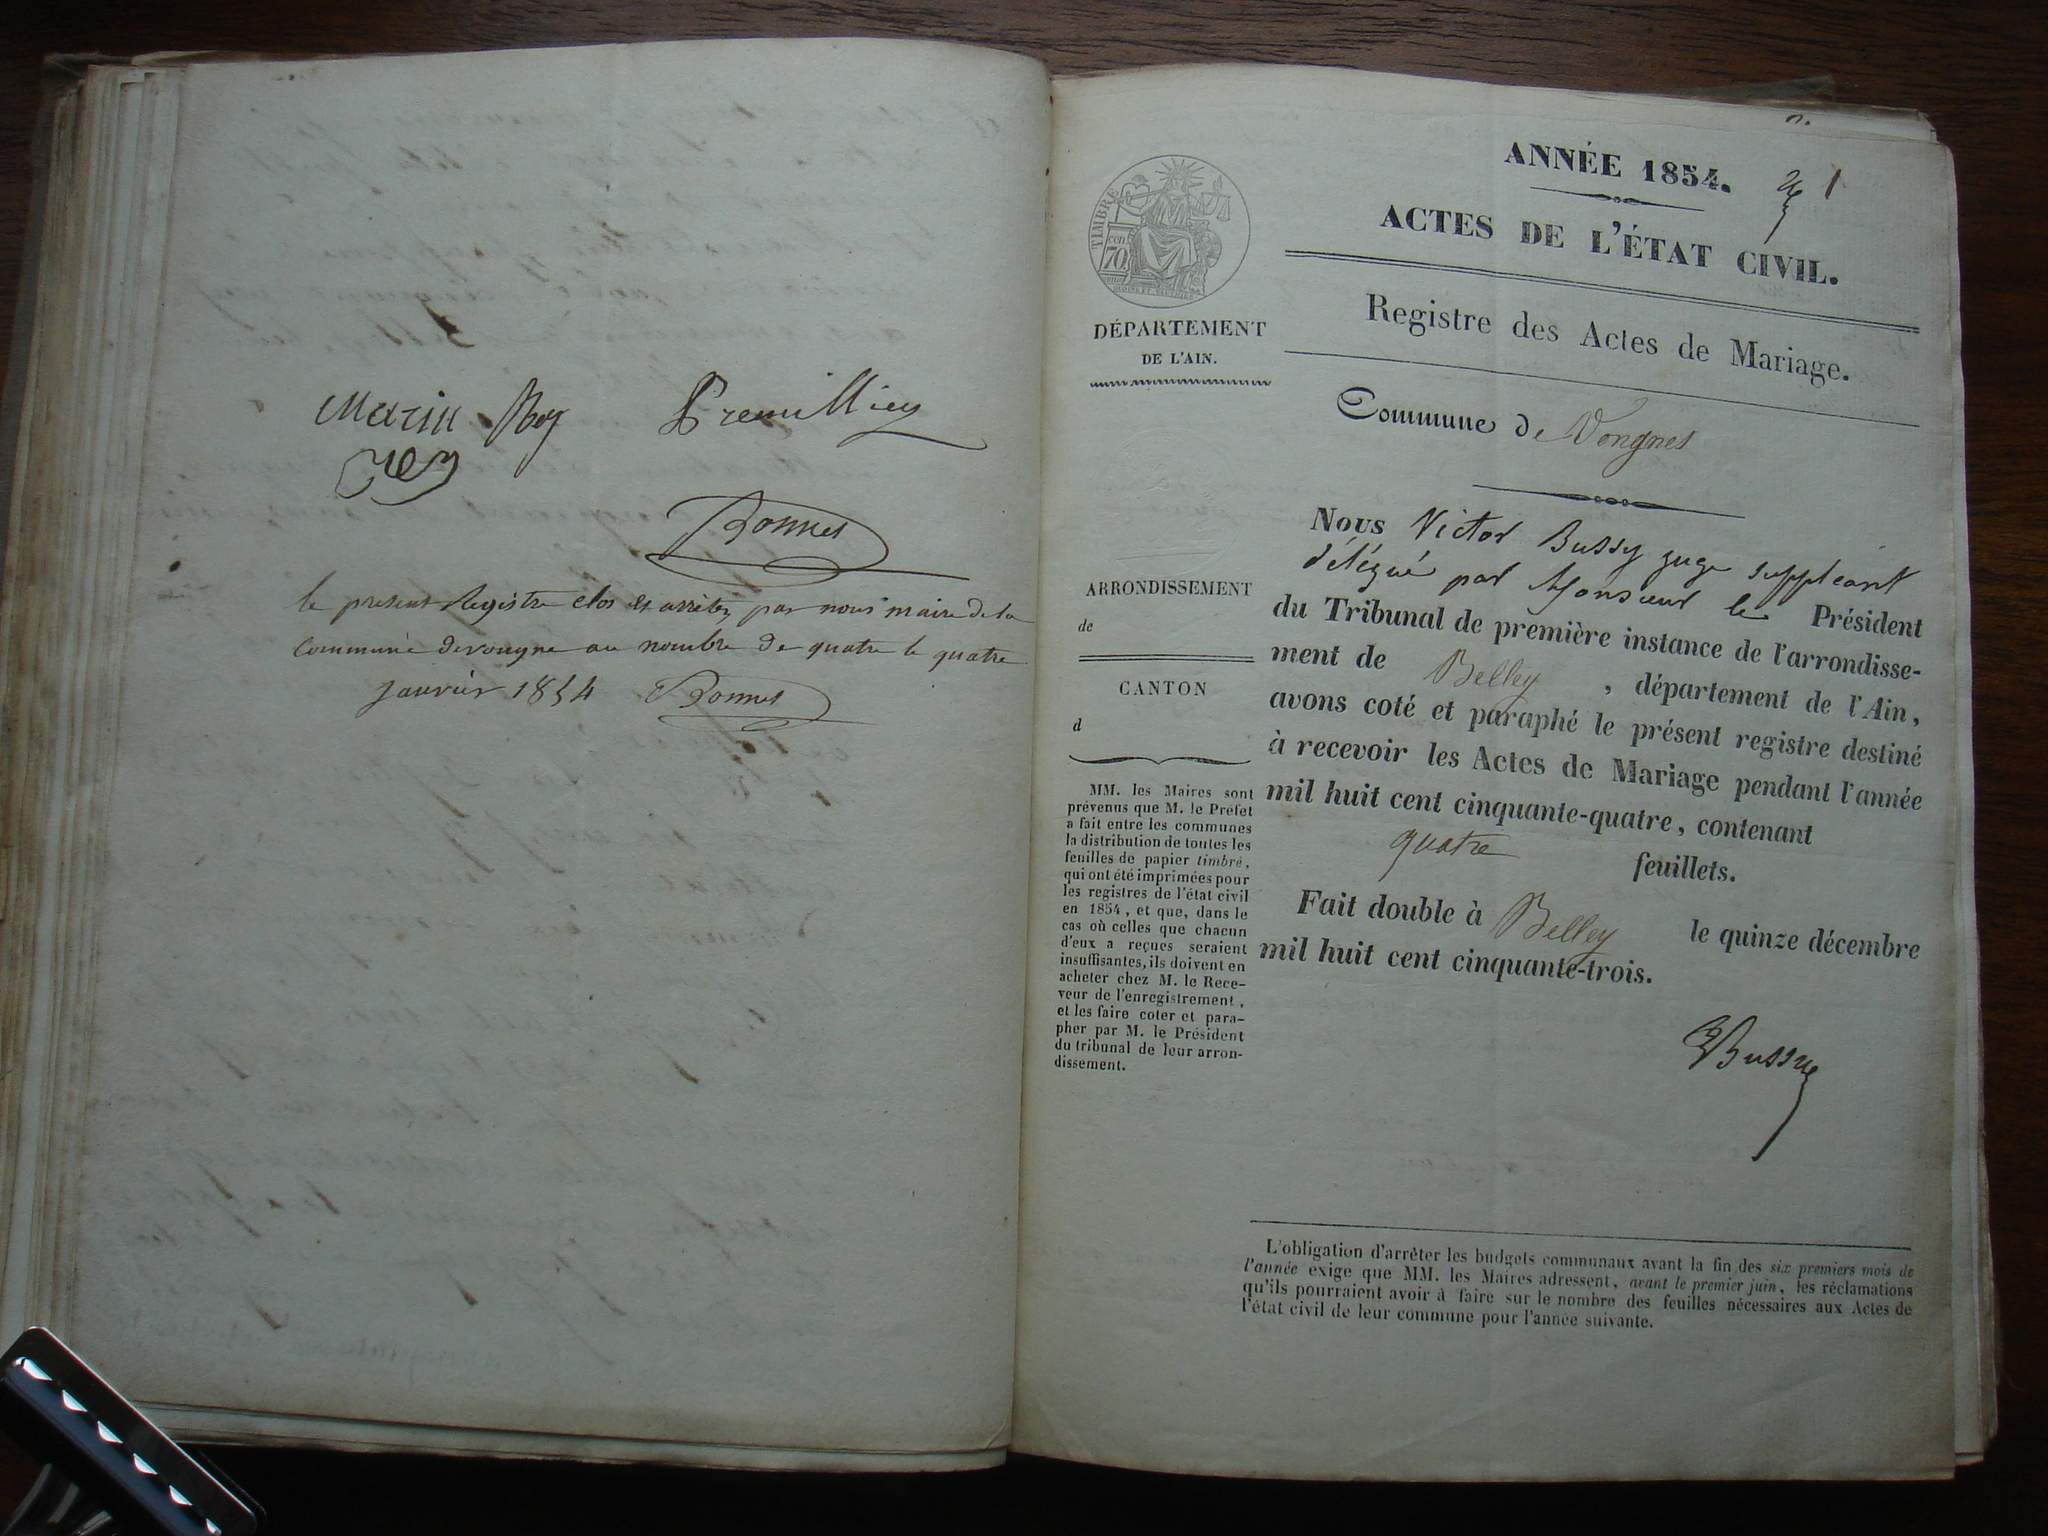 Marin Roy Premilliey
Bonnet
le present Registre clos et arrètez par nous maire de la
commune devougne au nombre de quatre le quatre
janvier 1854 Bonnet
1
ANNÉE 1854.
ACTES DE L'ÉTAT CIVIL.
Registre des Actes de Mariage.
TIMBRE
70
DÉPARTEMENT
DE L'AIN.
Commune de Vongnes
Nous Victor Bussy juge suppléant
délégué par Monsieur le Président
du Tribunal de première instance de l'arrondisse-
ment de Belley , département de l'Ain,
avons coté et paraphé le présent registre destiné
à recevoir les Actes de Mariage pendant l'année
mil huit cent cinquante-quatre, contenant
quatre feuillets.
Fait double à Belley le quinze décembre
mil huit cent cinquante-trois.
Bussy
ARRONDISSEMENT
de
CANTON
d
MM. les Maires sont
prévenus que M. le Préfet
a fait entre les communes
la distribution de toutes les
feuilles de papier timbré,
qui ont été imprimées pour
les registres de l'état civil
en 1854, et que, dans le
cas où celles que chacun
d'eux a reçues seraient
insuffisantes, ils doivent en
acheter chez M. le Rece-
veur de l'enregistrement,
et les faire coter et para-
pher par M. le Président
du tribunal de leur arron-
dissement.
L'obligation d'arrêter les budgets communaux avant la fin des six premiers mois de
l'année exige que MM. les Maires adressent, avant le premier juin, les réclamations
qu'ils pourraient avoir à faire sur le nombre des feuilles nécessaires aux Actes de
l'état civil de leur commune pour l'année suivante.